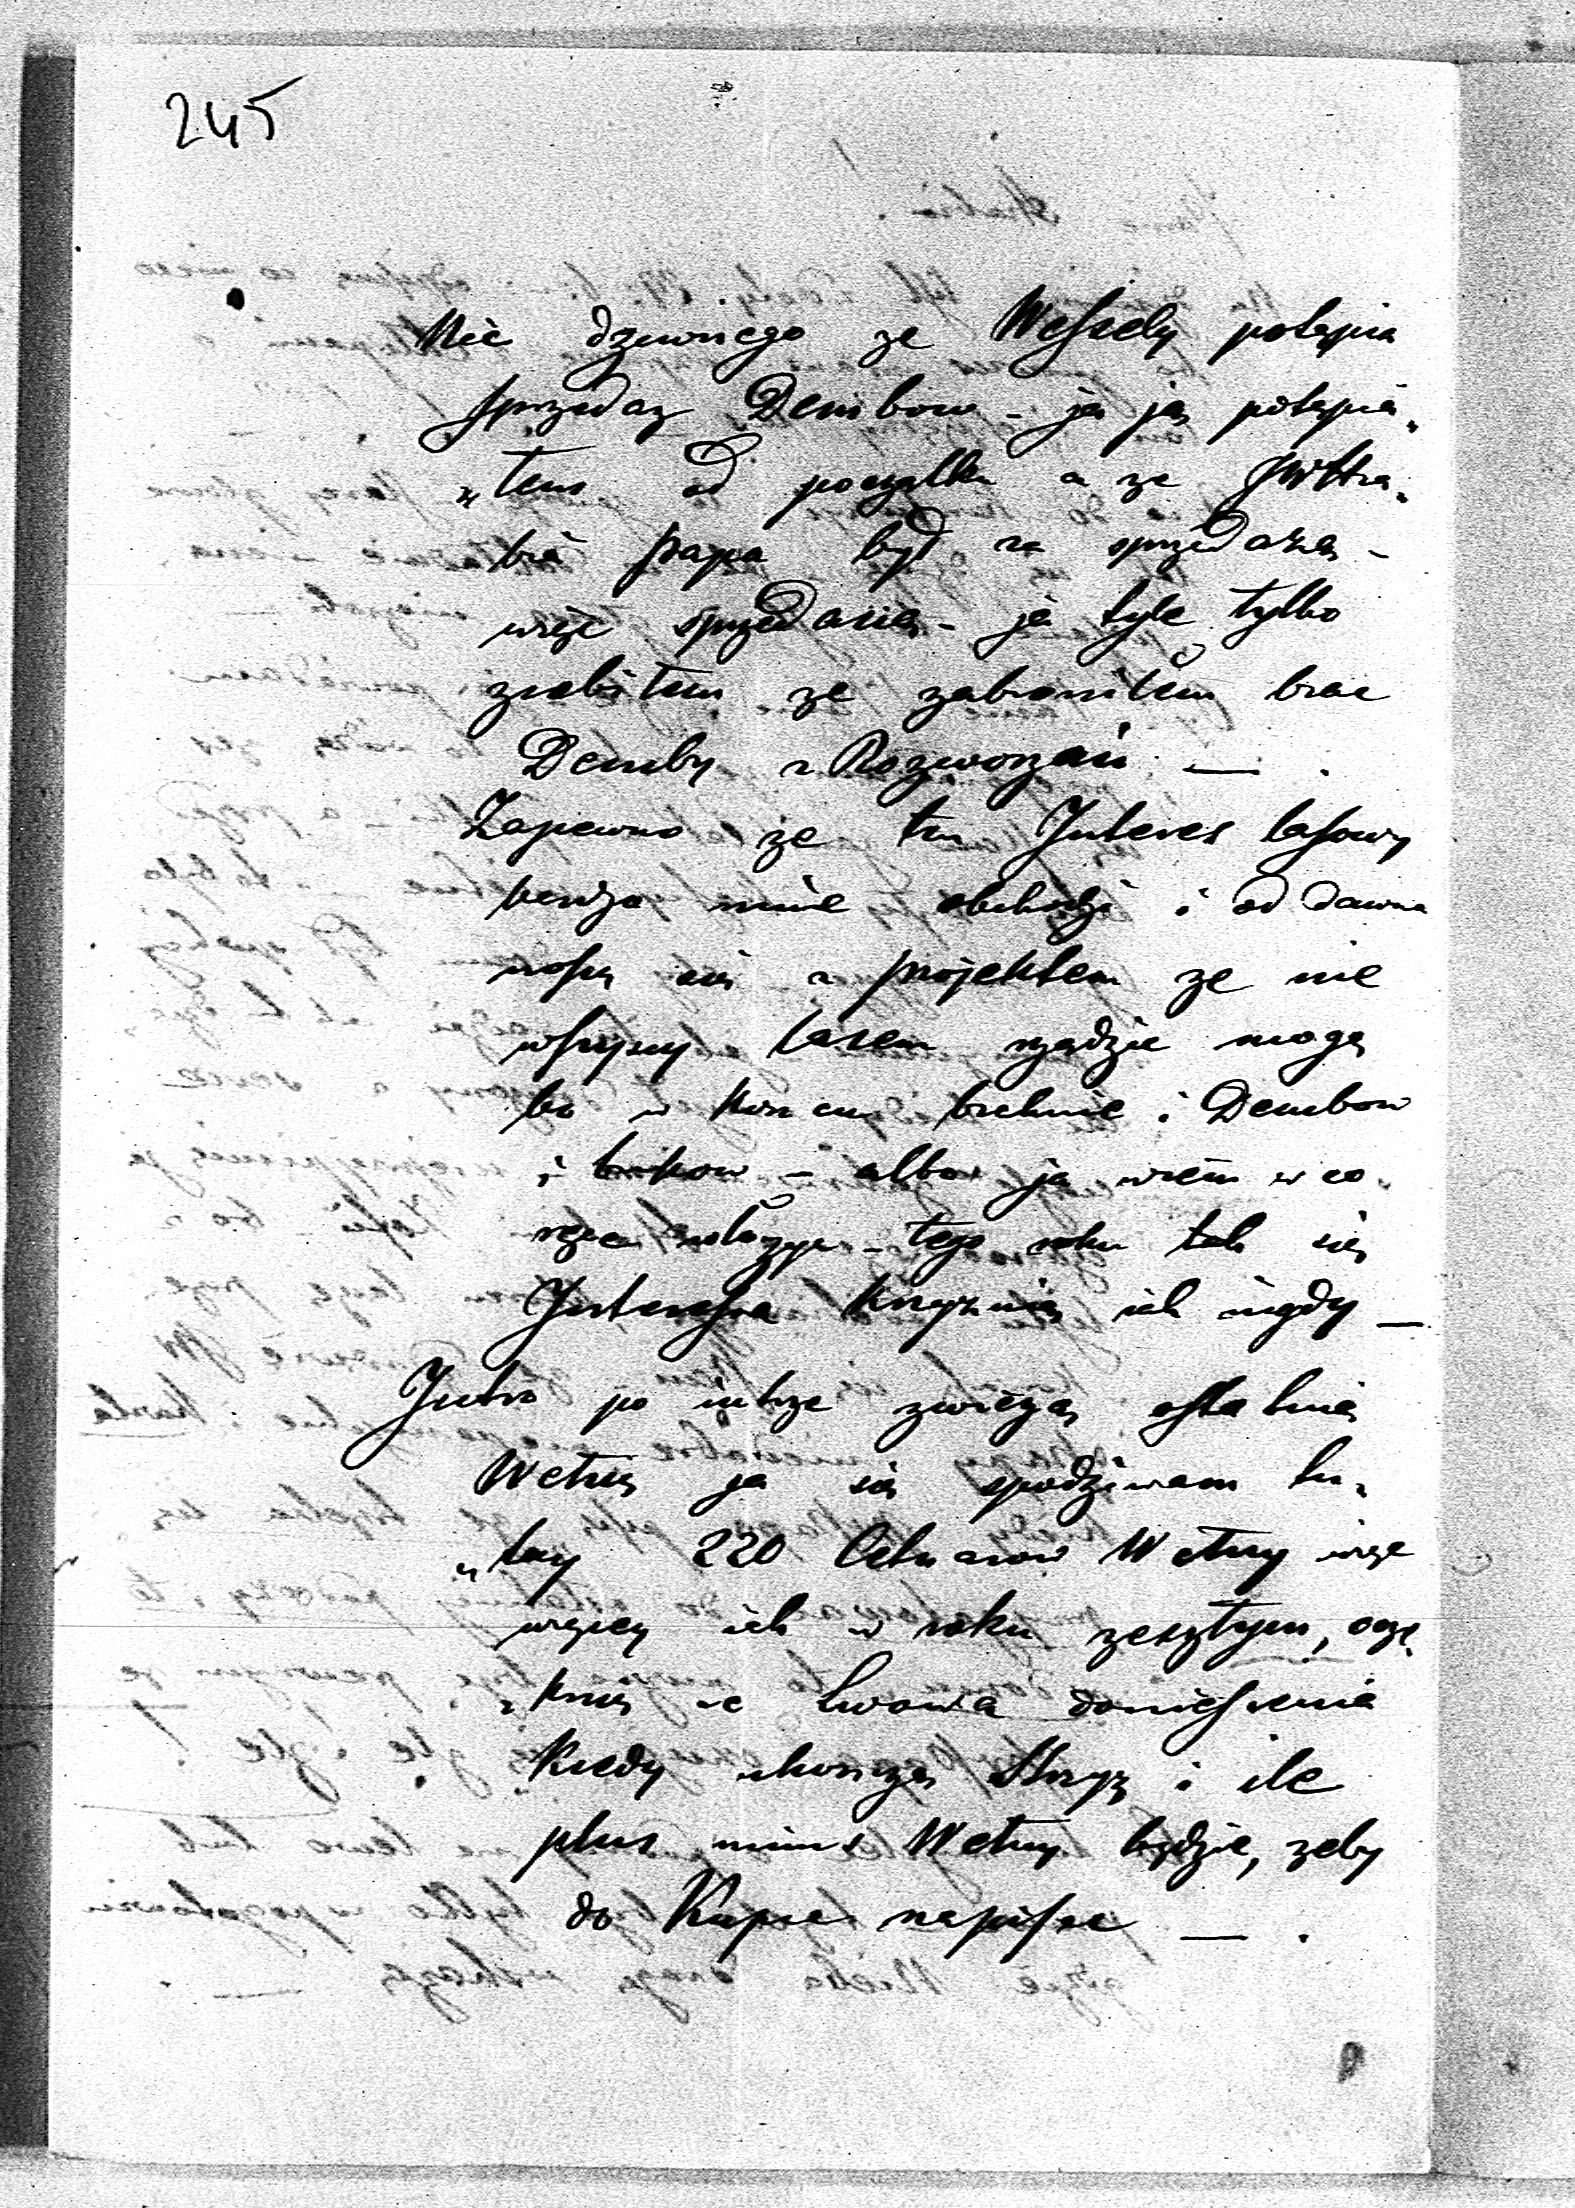 245
Nic dziwnego ze Wessely potępia
sprzedaz Dembow – ja ją potępia„
„łem od początku a ze JW Hra„
bia papa był za sprzedażą –
więc sprzedają – ja tyle tylko
zrobiłem ze zabroniłem brac
Demby z Rozworzan — .
Zapewno ze ten Interes lasowy
bardzo mnie obchodzi i od dawna
noszę się z projektem ze nie
wszyscy lasem rządzić mogą
bo w koncu braknie i Dembow
i bukow – albo ja wiem w co„
tego roku tak się
Interessa krzyżują jak nigdy —
Jutro po jutrze zwiezą ostatnią
Wełnę ja się spodziwam tu„
„tay 220 Cetnarow Wełny więc
więcey jak w roku zeszłym, ocze„
„kuię ze Lwowa doniesienia
kiedy ukonczą Strzyz i ile
plus minus Wełny będzie, zeby
do Kupca napisac — .